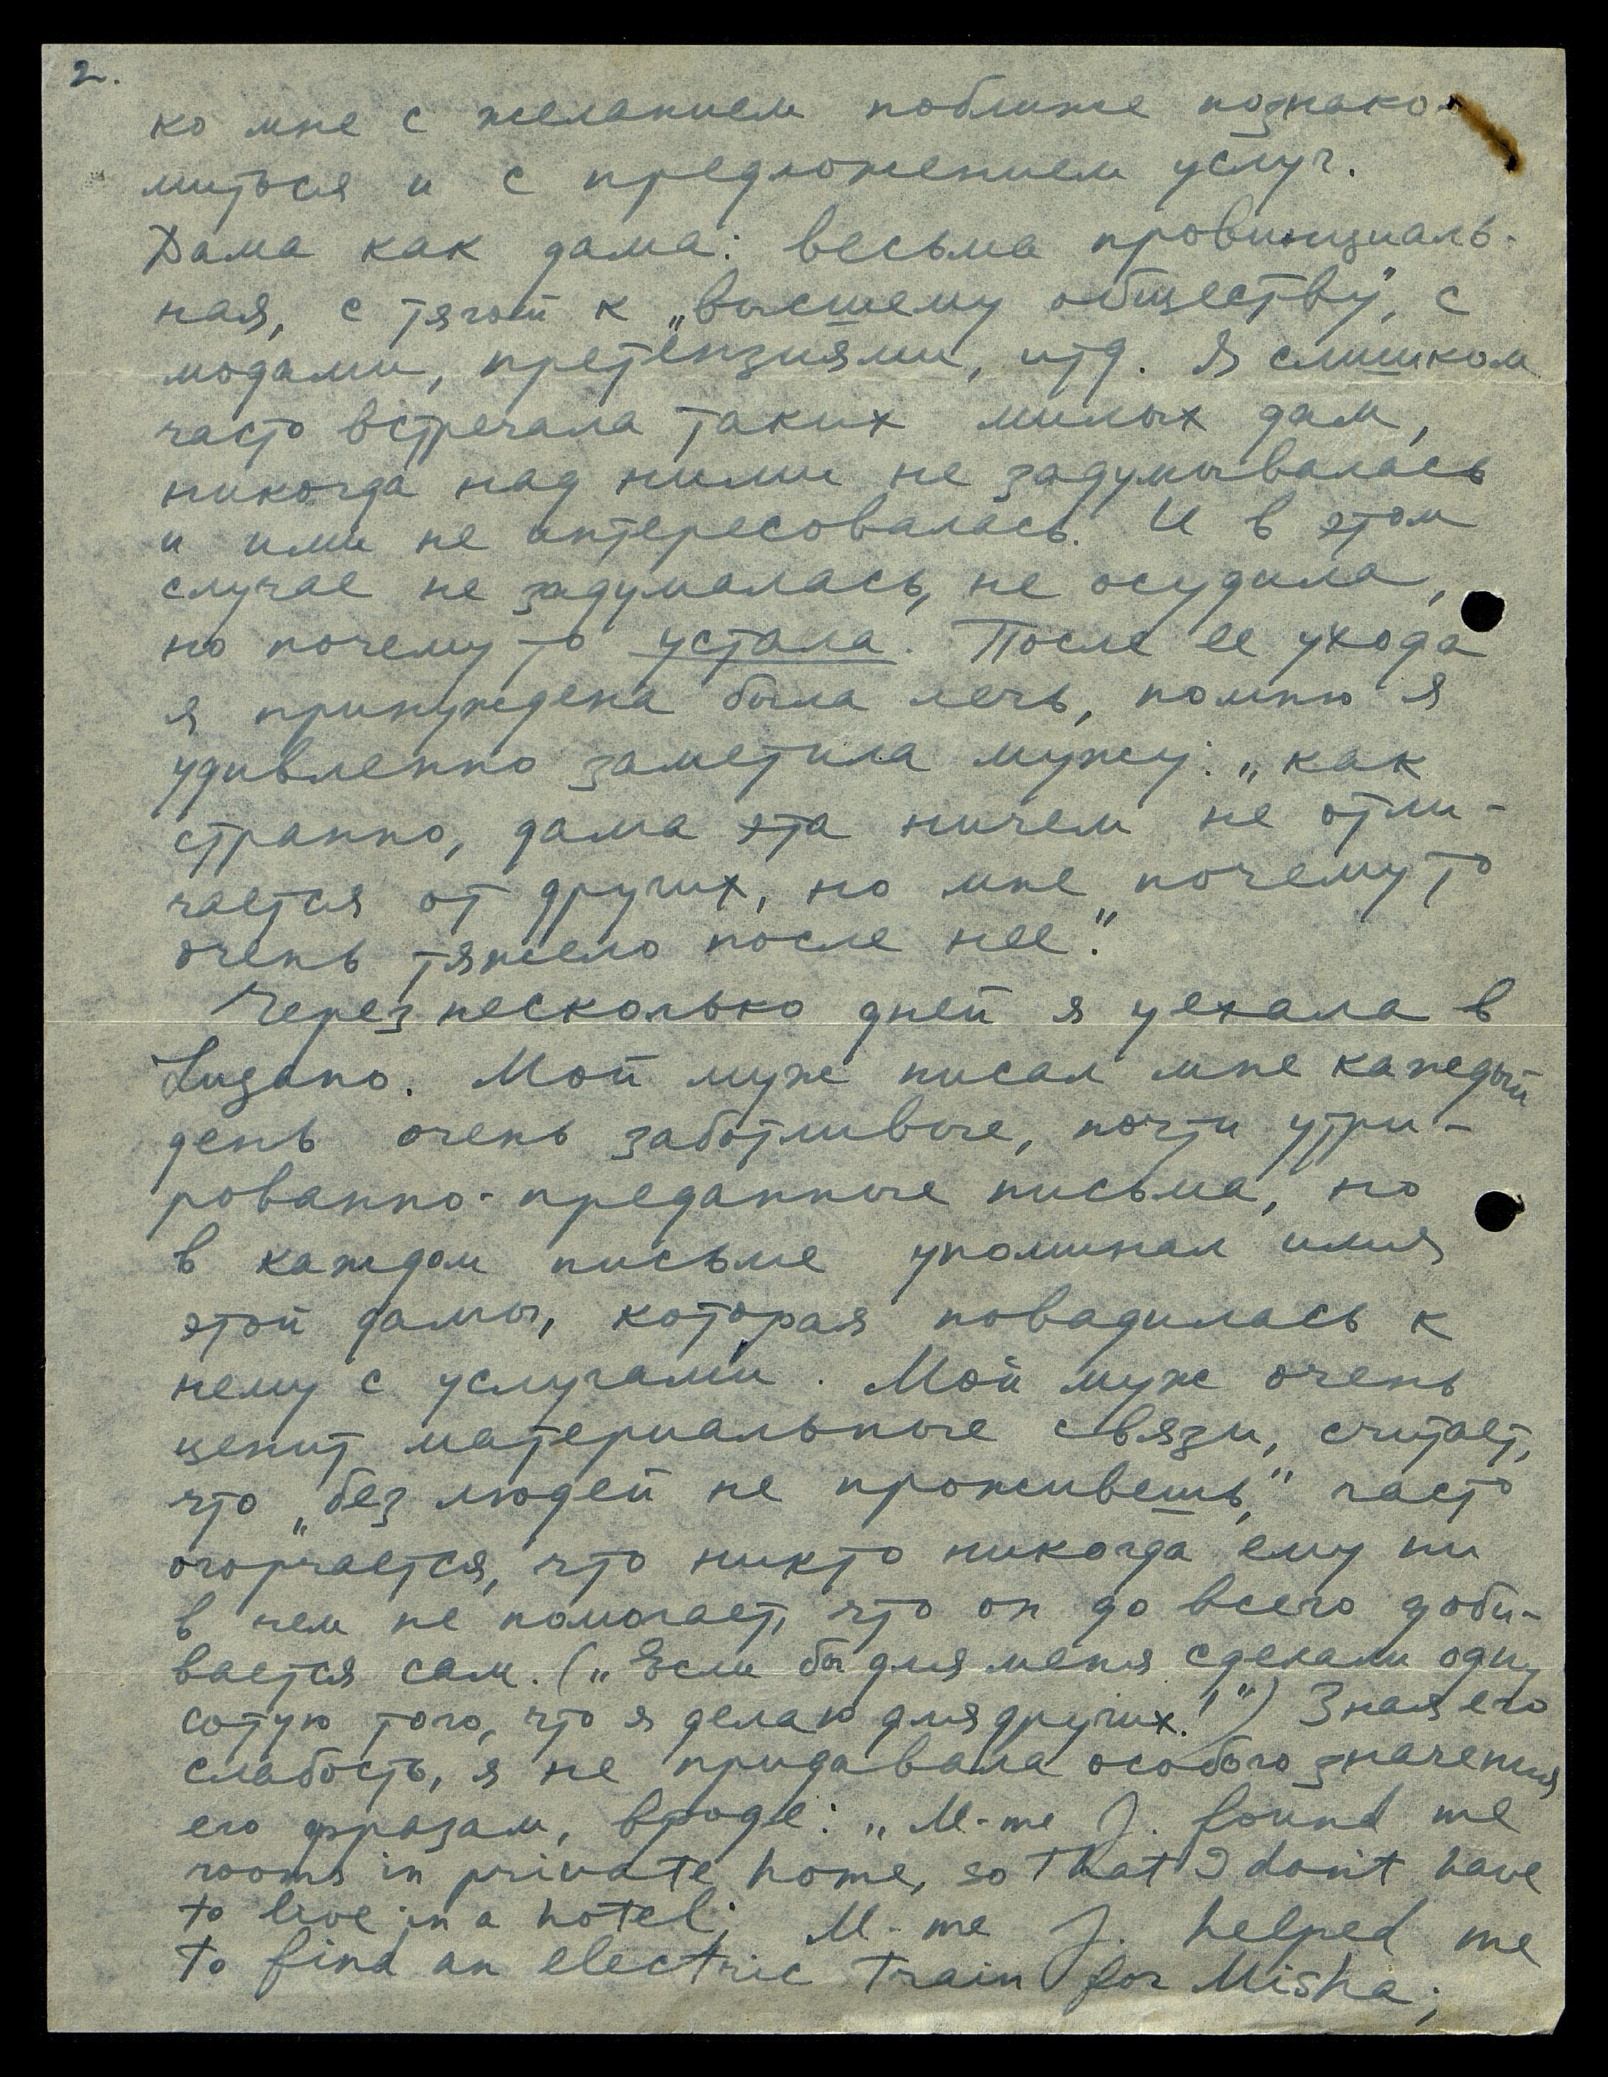 2.
ко мне с желанием поближе познако-
миться и с предложением услуг.
Дама как дама: весьма провинциаль-
ная, с тягой к „высшему обществу", с
модами, претензиями, итд. Я слишком
часто встречала таких милых дам,
никогда над ними не задумывалась
и ими не интересовалась. И в этом
случае не задумалась, не осудила,
но почему то устала. После ее ухода
я принуждена была лечь, помню я
удивленно заметила мужу: „как
странно, дама эта ничем не отли-
чается от других, но мне почему то
очень тяжело после нее."
Через несколько дней я уехала в
Lugano. Мой муж писал мне каждый
день очень заботливые, почти утри-
рованно-преданные письма, но
в каждом письме упоминал имя
этой дамы, которая повадилась к
нему с услугами. Мой муж очень
ценит материальные связи, считает,
что „без людей не проживешь," часто
огорчается, что никто никогда ему ни
в чем не помогает, что он до всего доби-
вается сам. („Если бы для меня сделали одну
сотую того, что я делаю для других!") Зная его
слабость, я не придавала особого значения
его фразам, вроде: „M-me J. found me
rooms in private home, so that I don't have
to live in a hotel; M-me J. helped me
to find an electric train for Misha;